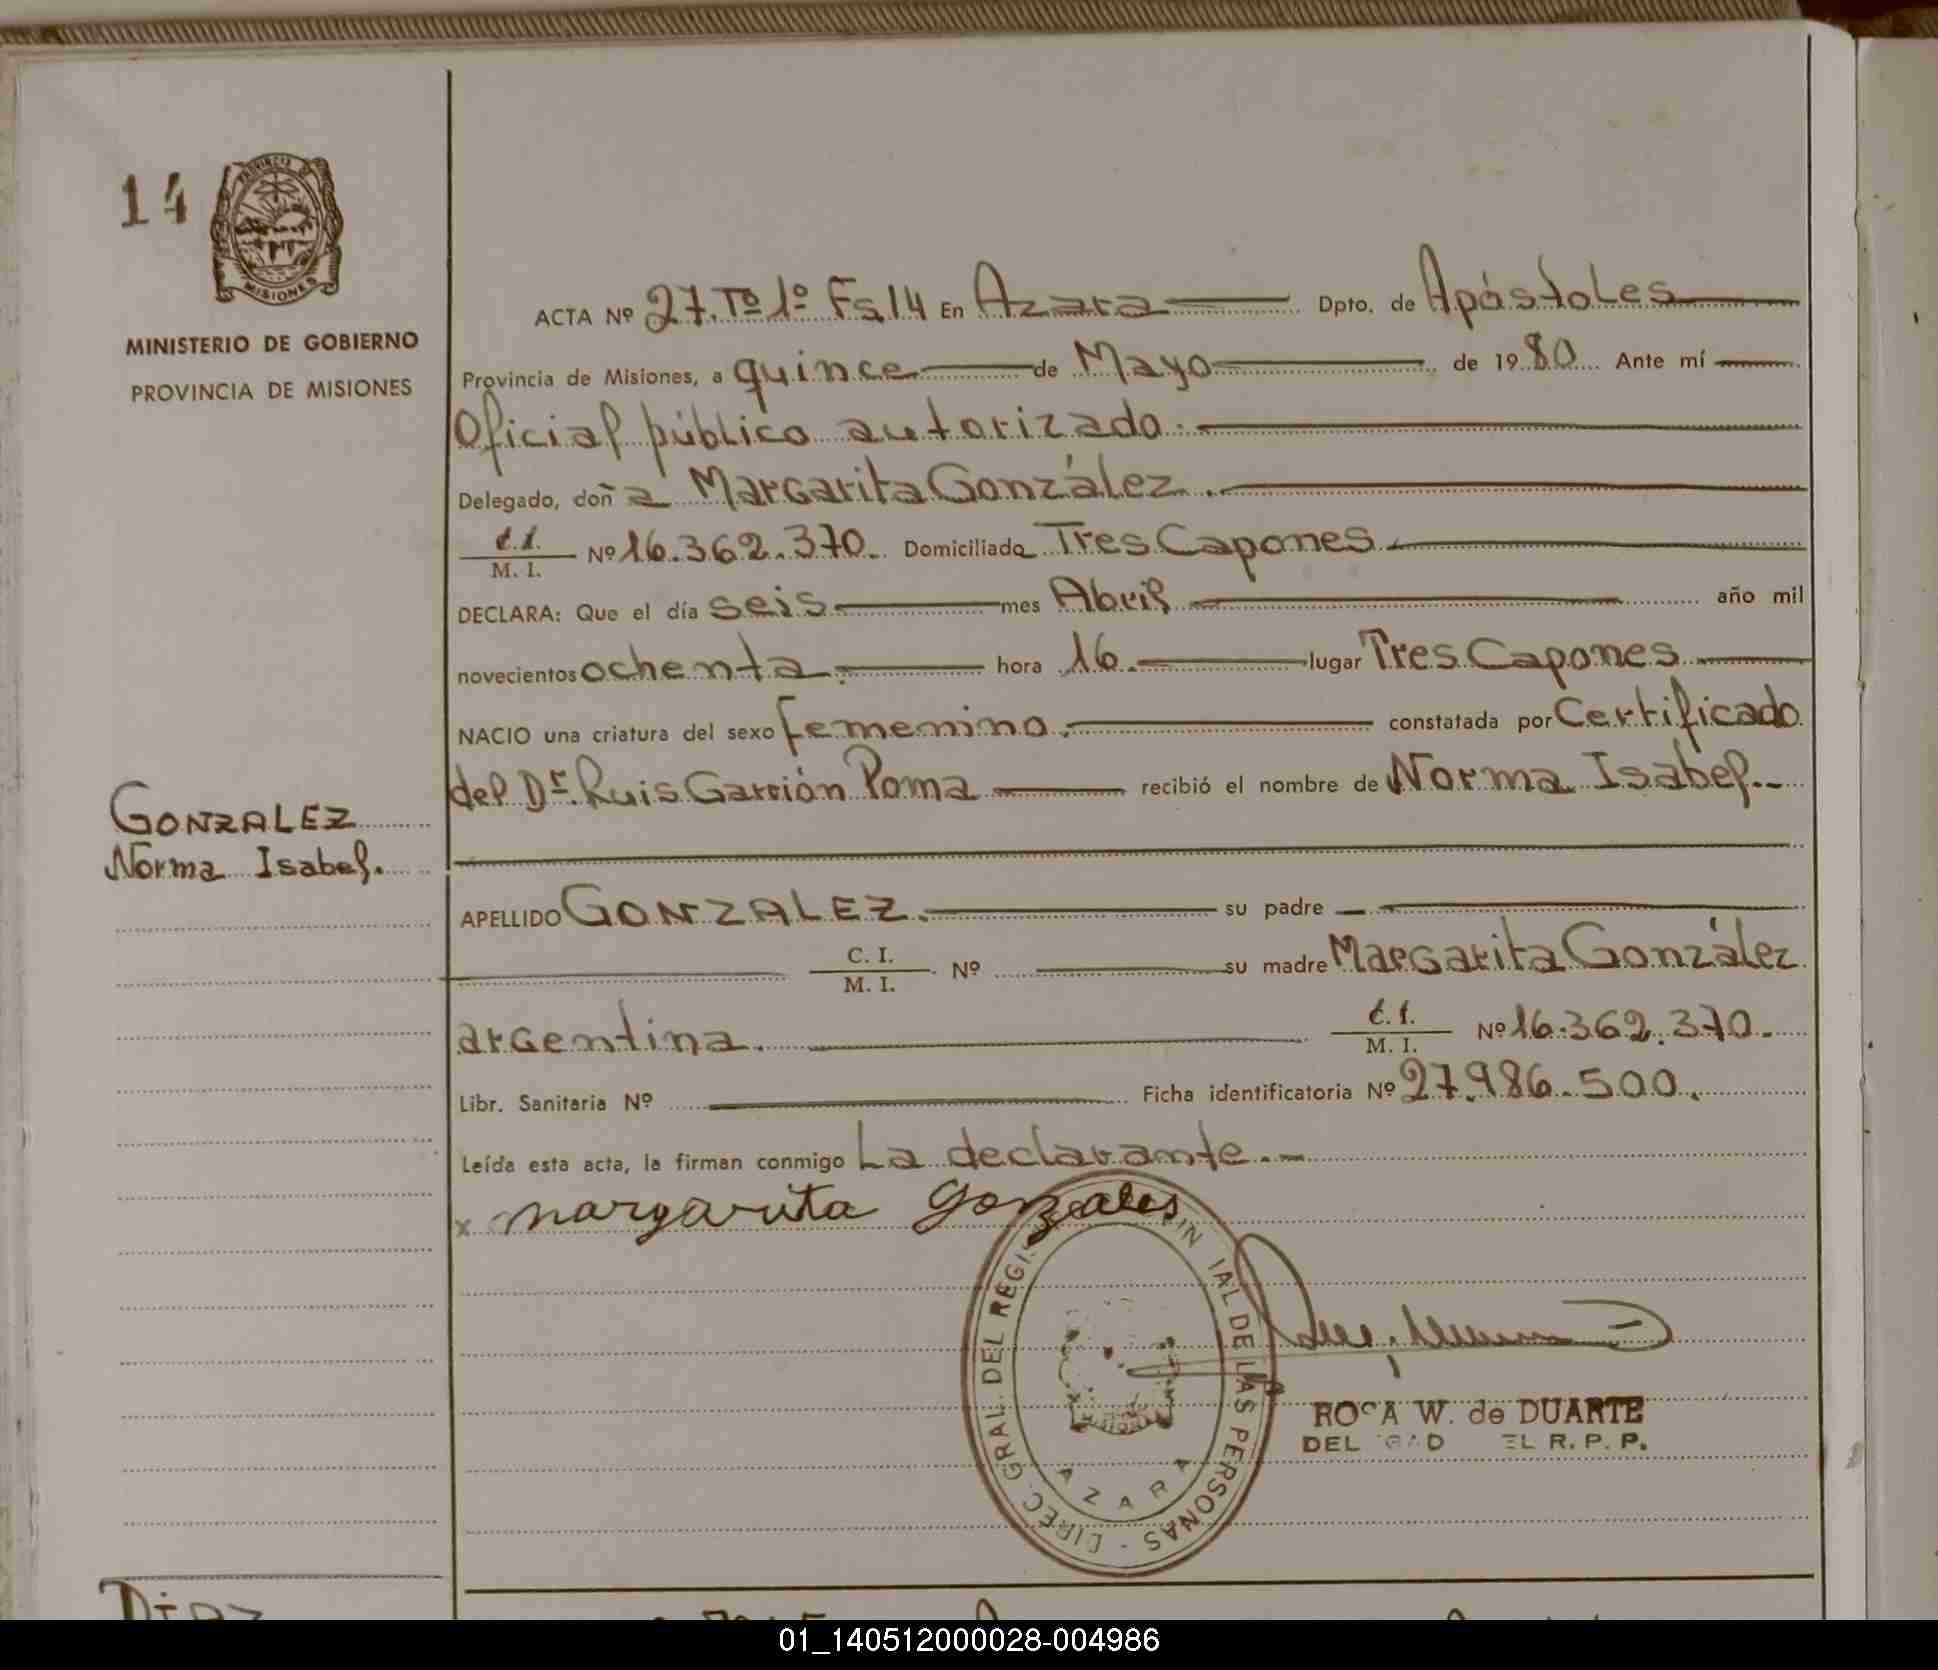 14
PROVINCIA DE
MISIONES
MINISTERIO DE GOBIERNO
PROVINCIA DE MISIONES
ACTA Nº 27. Tº 1º Fs 14 En Azara Dpto. de Apóstoles
Provincia de Misiones, a quince de Mayo de 1980 Ante mí
Oficial público autorizado.
Delegado, doña Margarita González.
C.I. Nº 16.362.370. Domiciliada Tres Capones
M. I.
DECLARA: Que el día seis mes Abril año mil
novecientos ochenta. hora 16. lugar Tres Capones
NACIO una criatura del sexo femenino. constatada por Certificado
del Dr. Luis Garrión Poma recibió el nombre de Norma Isabel.-
GONZALEZ
Norma Isabel.
APELLIDO GONZALEZ. su padre
C. I.
M. I. Nº su madre Margarita González
argentina. C.I. Nº 16.362.370.
M. I.
Libr. Sanitaria Nº Ficha identificatoria Nº 27.986.500.
Leída esta acta, la firman conmigo La declarante.-
x margarita gonzales
DIREC. GRAL. DEL REGI IN IAL DE LAS PERSONAS -
AZARA
ROSA W. de DUARTE
DEL GAD EL R. P. P.
01_140512000028-004986